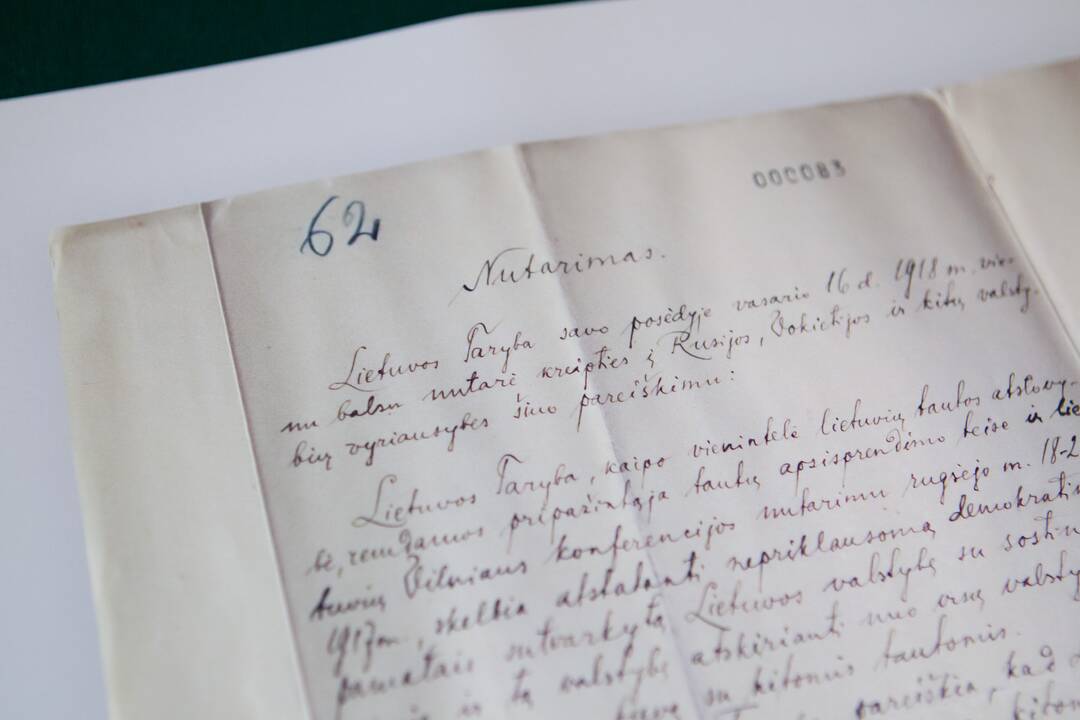 62
000083
Nutarimas.
Lietuvos Taryba savo posėdyje vasario 16 d. 1918 m. vie-
nu balsu nutarė kreipties į Rusijos, Vokietijos ir kitų valsty-
bių vyriausybes šiuo pareiškimu:
Lietuvos Taryba, kaipo vienintelė lietuvių tautos atstovy-
bė, remdamos pripažintąja tautų apsisprendimo teise ir lie
tuvių Vilniaus konferencijos nutarimu rugsėjo m. 18-2
1917 m., skelbia atstatanti nepriklausomą demokratin
pamatais sutvarkytą Lietuvos valstybę su sostin
ir tą valstybę atskirianti nuo visų valsty
buvę su kitomis tautomis.
Taryba pareiškia, kad
kitom